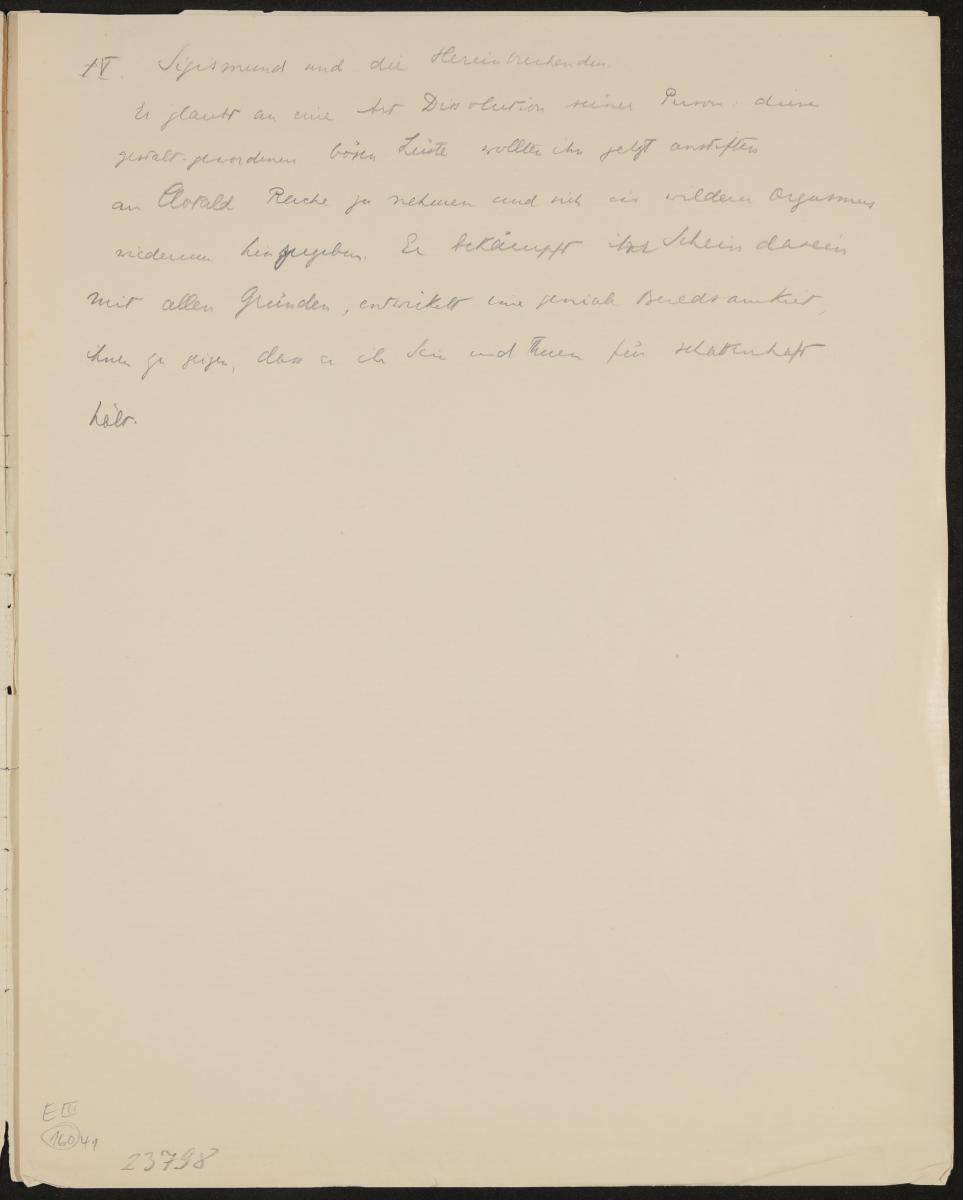 IV. Sigismund und die Hereinbrechenden.
Er glaubt an eine Art Dissolution seiner Person: diese
gestalt-gewordenen bösen Lüste wollten ihn jetzt anstiften
an Clotald Rache zu nehmen und sich in wildem Orgasmus
wiederum hinzugeben. Er bekämpft ihr Scheindasein
mit allen Gründen, entwickelt eine geniale Beredsamkeit,
ihnen zu zeigen, dass er ihr Sein und Thuen für schattenhaft
hält.
E III
160 41
23798